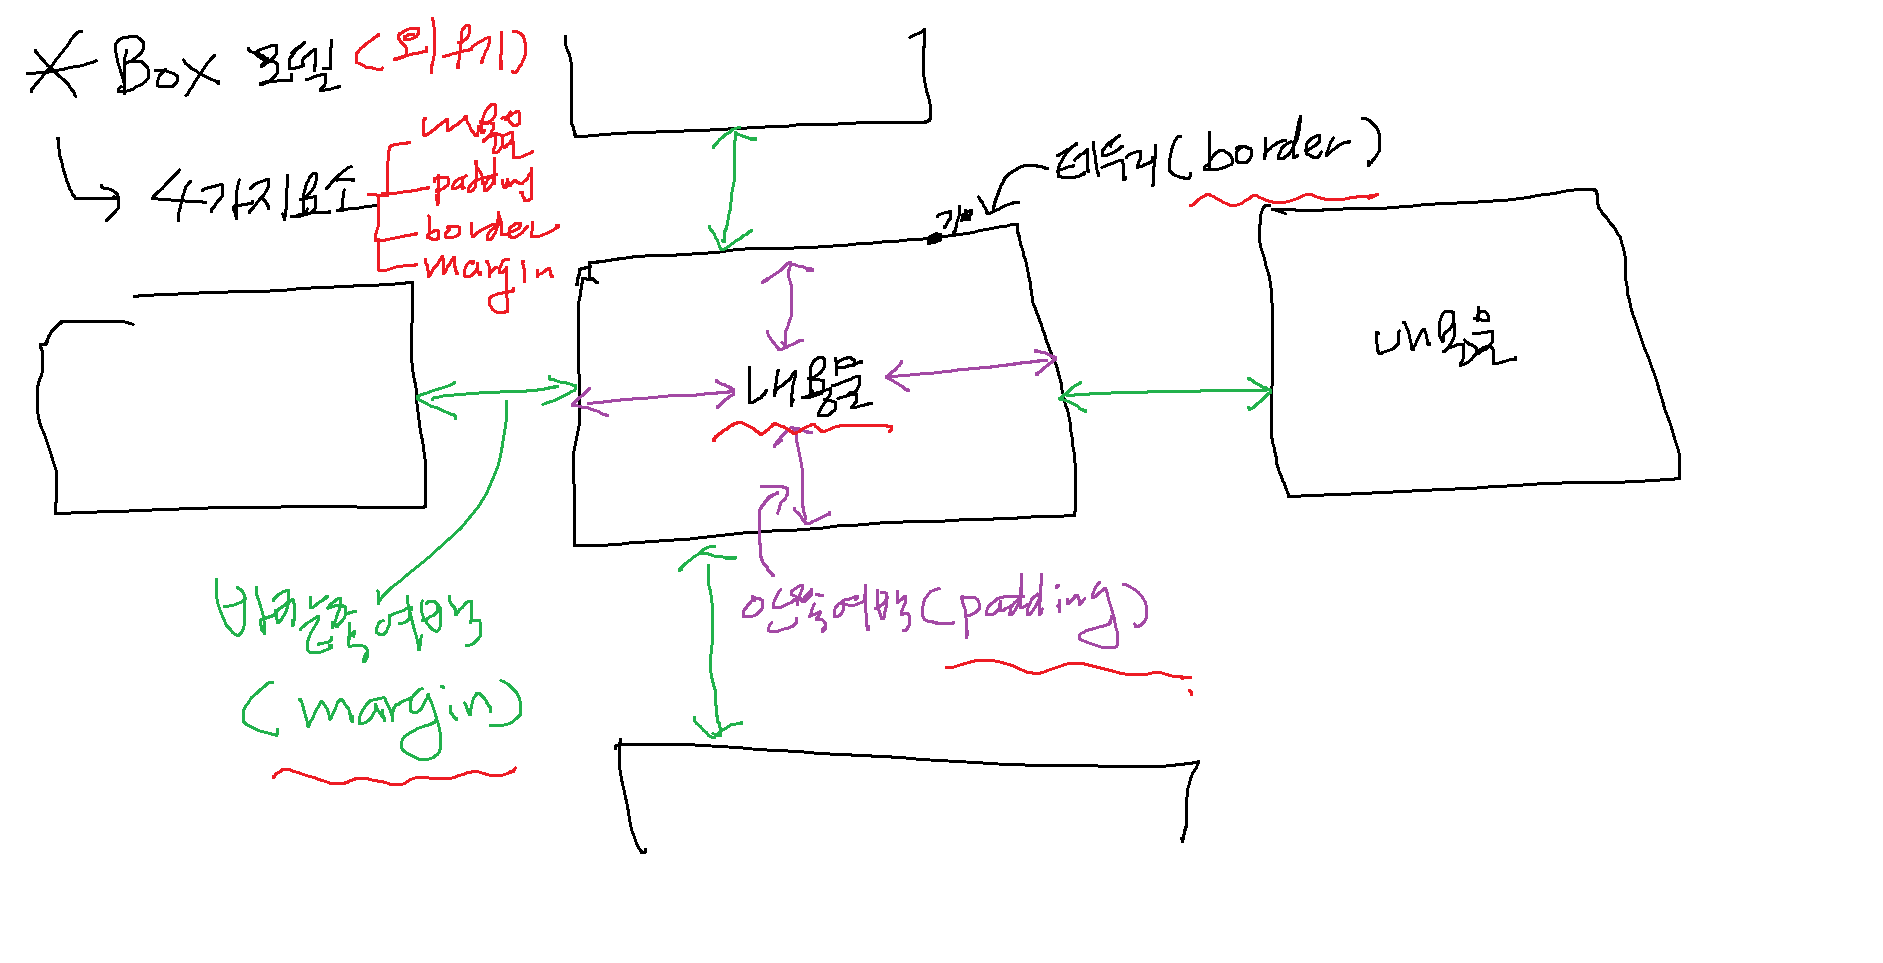 * Box 모델 (외우기)
→ 4가지요소
내용물
padding
border
margin
테두리 (border)
내용물
내용물
바깥쪽 여백
(margin)
안쪽여백 (padding)